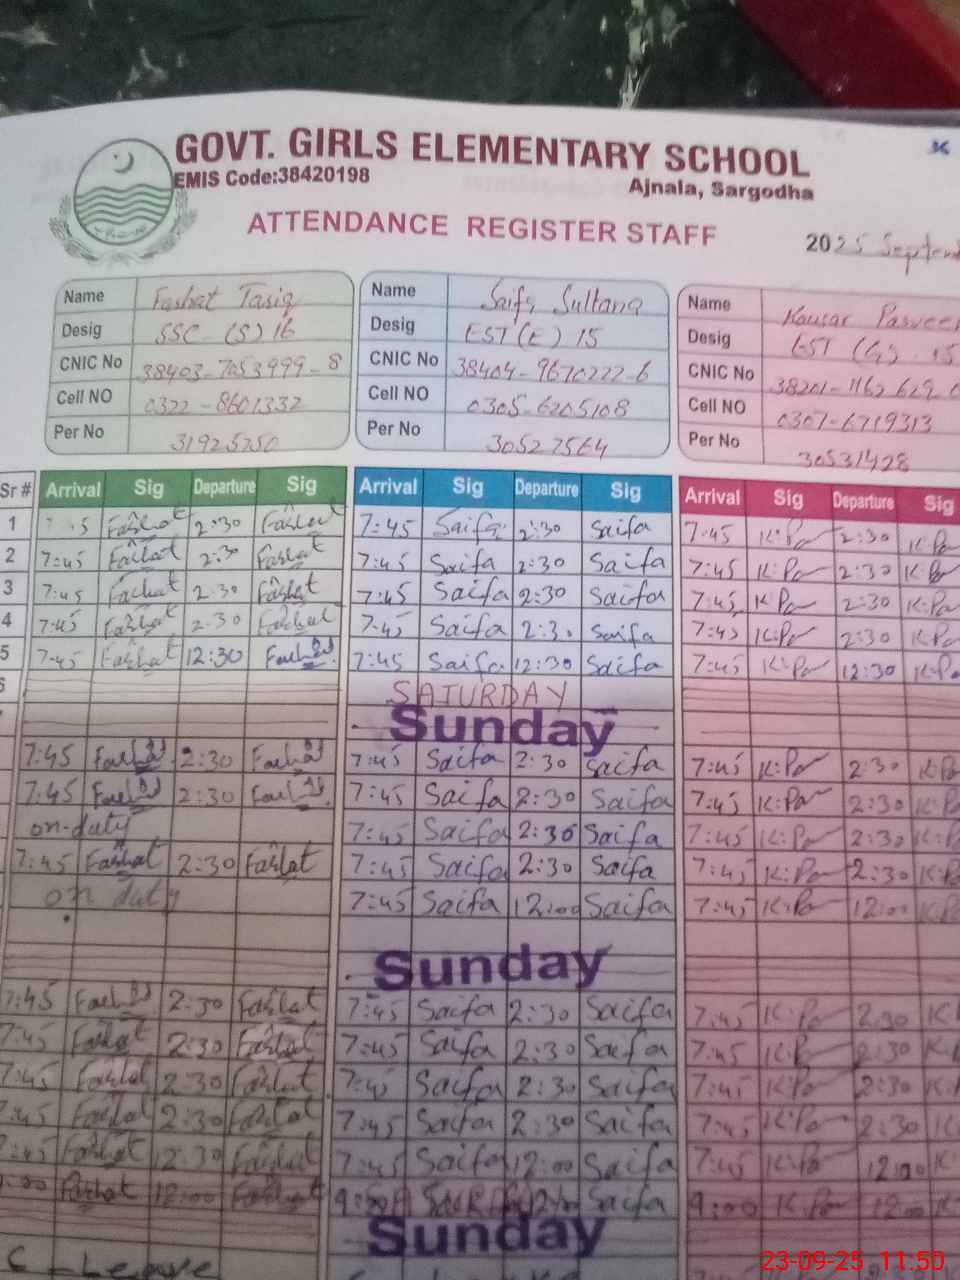 GOVT. GIRLS ELEMENTARY SCHOOL
EMIS Code:38420198 Ajnala, Sargodha
ATTENDANCE REGISTER STAFF
2025 Septem
Name Fashat Tariq Name Saifa Sultana Name Kousar Parveen
Desig SSC (S) 16 Desig EST (E) 15 Desig EST (G) 15
CNIC No 38403-7053999-8 CNIC No 38404-9670222-6 CNIC No 38201-1162629
Cell NO 0322-8601332 Cell NO 0305-6205108 Cell NO 0307-6719313
Per No 31925750 Per No 30527564 Per No 30531428
Sr # Arrival Sig Departure Sig Arrival Sig Departure Sig Arrival Sig Departure Sig
1 Fashat 2:30 Fashat 7:45 Saifa 2:30 Saifa 7:45 K:Pa 2:30 K:Pa
2 7:45 Fashat 2:30 Fashat 7:45 Saifa 2:30 Saifa 7:45 K:Pa 2:30 K:Pa
3 7:45 Fashat 2:30 Fashat 7:45 Saifa 2:30 Saifa 7:45 K:Pa 2:30 K:Pa
4 7:45 Fashat 2:30 Fashat 7:45 Saifa 2:30 Saifa 7:45 K:Pa 2:30 K:Pa
5 7:45 Fashat 12:30 7:45 Saifa 12:30 Saifa 7:45 K:Pa 12:30 K:Pa
SATURDAY
Sunday
7:45 2:30 7:45 Saifa 2:30 Saifa 7:45 K:Pa 2:30 K:Pa
7:45 2:30 7:45 Saifa 2:30 Saifa 7:45 K:Pa 2:30 K:Pa
on-duty 7:45 Saifa 2:30 Saifa 7:45 K:Pa 2:30 K:Pa
7:45 Fashat 2:30 Fashat 7:45 Saifa 2:30 Saifa 7:45 K:Pa 2:30 K:Pa
on duty 7:45 Saifa 12:00 Saifa 7:45 K:Pa 12:00 K:Pa
Sunday
7:45 2:30 Fashat 7:45 Saifa 2:30 Saifa 7:45 K:Pa 2:30
7:45 Fashat 2:30 Fashat 7:45 Saifa 2:30 Saifa 7:45 K:Pa 2:30
7:45 Fashat 2:30 Fashat 7:45 Saifa 2:30 Saifa 7:45 K:Pa 2:30
7:45 Fashat 2:30 Fashat 7:45 Saifa 2:30 Saifa 7:45 K:Pa 2:30
7:45 Fashat 12:30 Fashat 7:45 Saifa 12:00 Saifa 7:45 K:Pa 12:00
Fashat 12:00 Fashat Saifa 9:00 K:Pa 12:00
Sunday
C - Leave
23-09-25 11:50